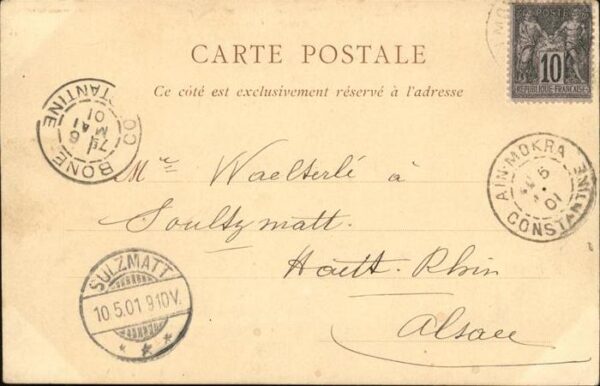 CARTE POSTALE
Ce côté est exclusivement réservé à l'adresse
POSTE
10
RÉPUBLIQUE FRANÇAISE
BONE
CONSTANTINE
6
MAI
01
AIN-MOKRA
CONSTANTINE
01
Mlle Waelterlé à
Soultzmatt
Haut-Rhin
Alsace
SULZMATT
10.5.01 9 10V.